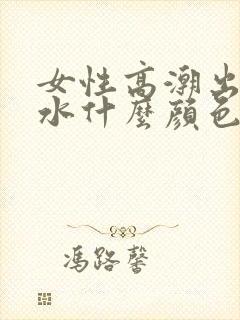 女性高潮出
水什麼顔色
馮路馨